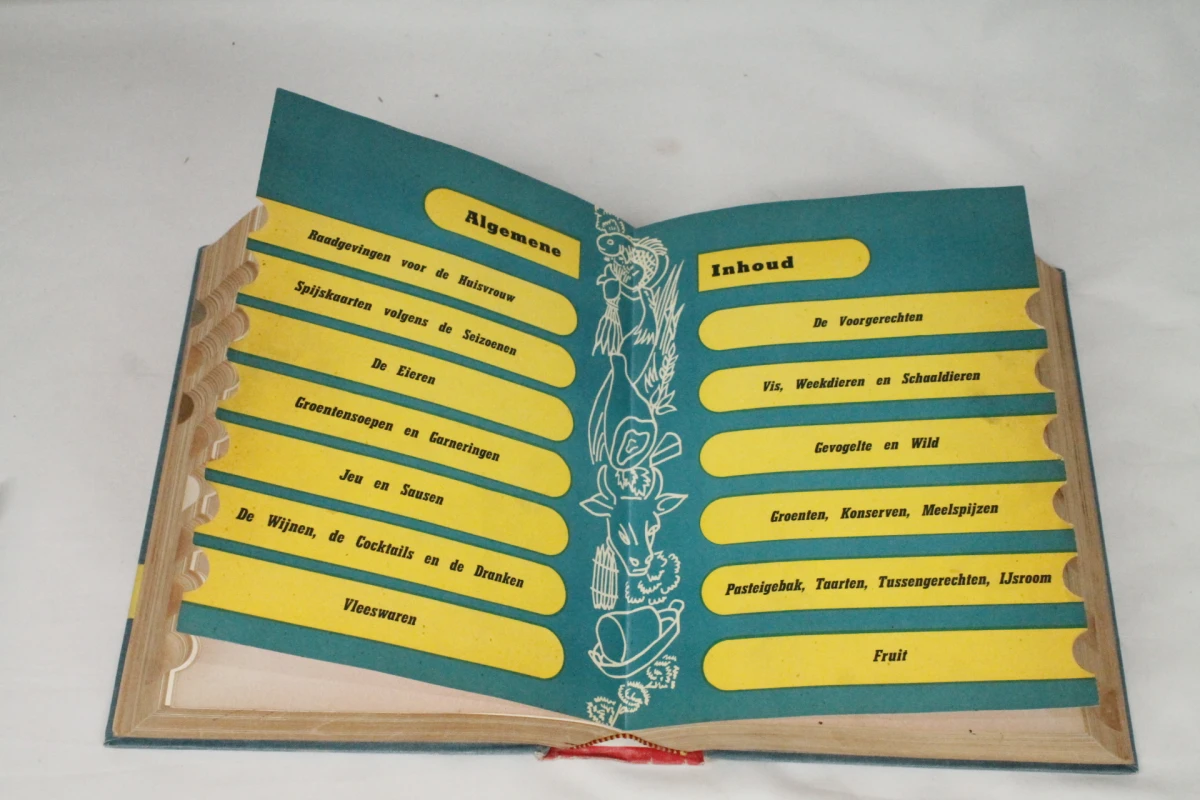 Algemene
Raadgevingen voor de Huisvrouw
Spijskaarten volgens de Seizoenen
De Eieren
Groentensoepen en Garneringen
Jeu en Sausen
De Wijnen, de Cocktails en de Dranken
Vleeswaren
Inhoud
De Voorgerechten
Vis, Weekdieren en Schaaldieren
Gevogelte en Wild
Groenten, Konserven, Meelspijzen
Pasteigebak, Taarten, Tussengerechten, IJsroom
Fruit